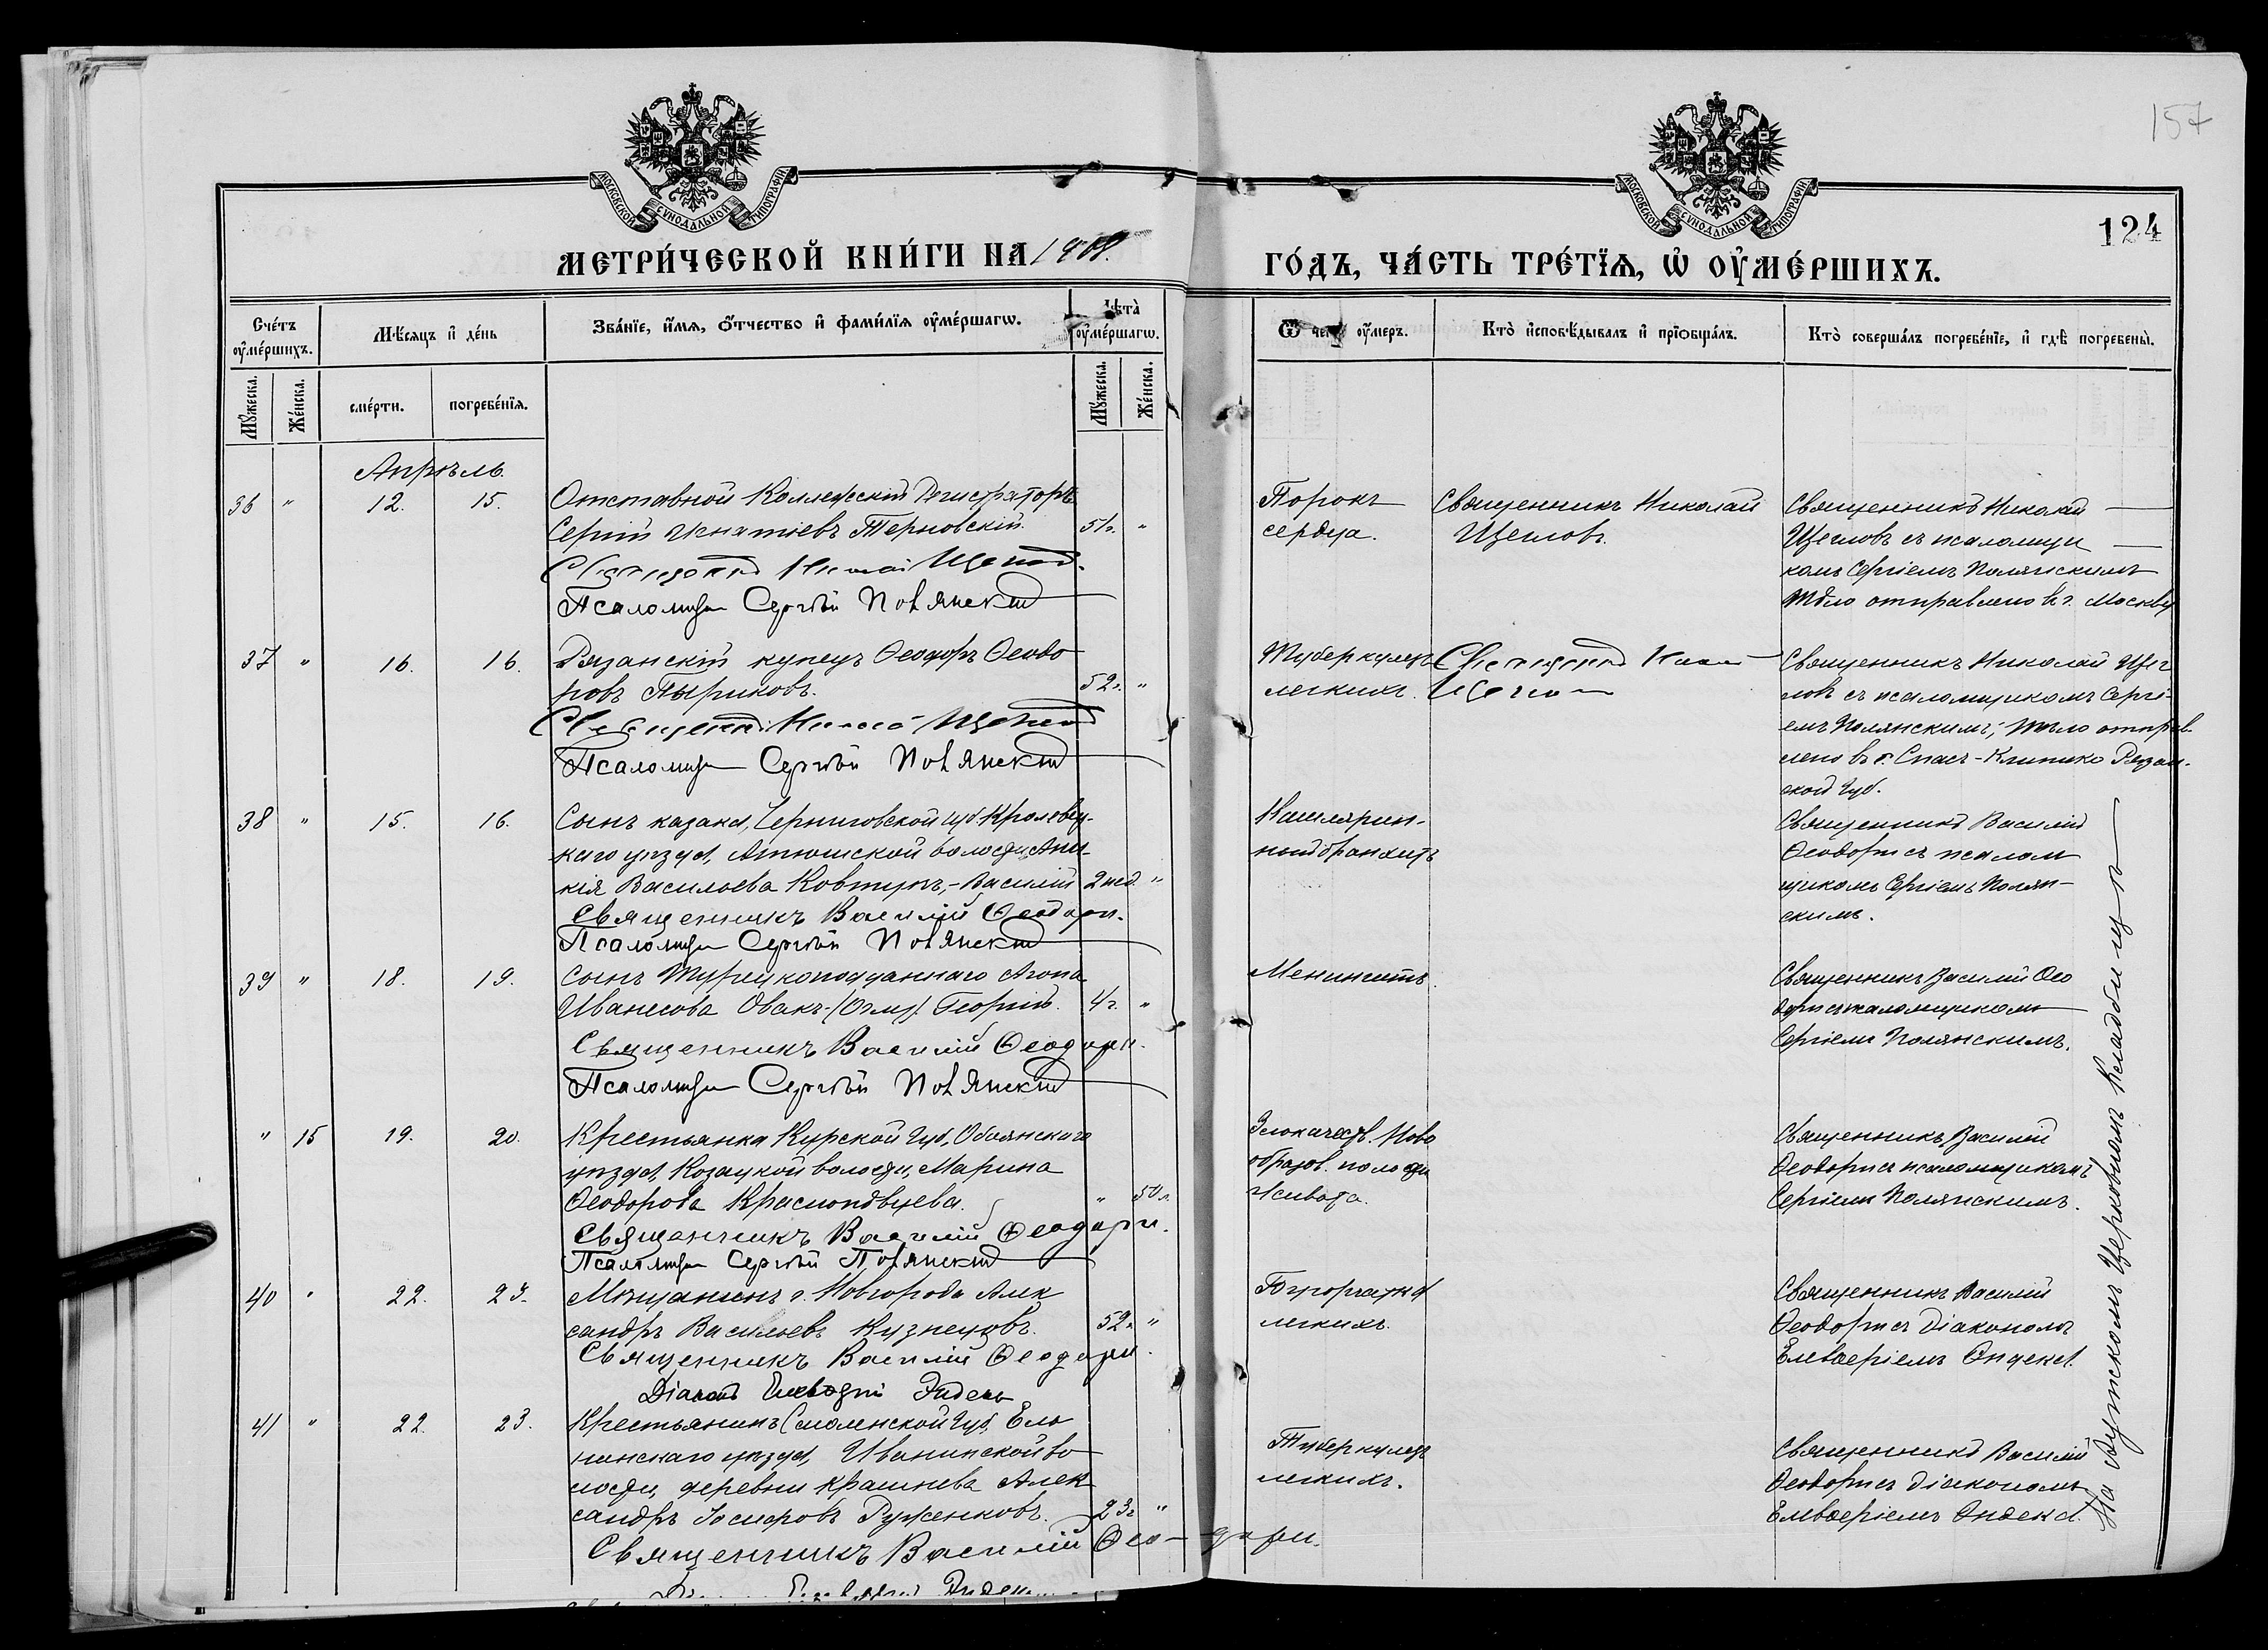 157
124
МОСКОВСКОЙ СУНОДАЛЬНОЙ ТИПОГРАФІИ
МОСКОВСКОЙ СУНОДАЛЬНОЙ ТИПОГРАФІИ
МЕТРИ́ЧЕСКОЙ КНИ́ГИ НА 190
ГО́ДЪ, ЧА́СТЬ ТРЕ́ТЇѦ, Ѡ҆ ОУ҆МЕ́РШИХЪ.
Сче́тъ оу҆ме́ршихъ.
Мѣ́сѧцъ и҆ де́нь
Зва́нїе, и҆́мѧ, ѻ҆́тчество и҆ фами́лїѧ оу҆ме́ршагѡ.
Лѣ́та оу҆ме́ршагѡ.
Ѿ чегѡ̀ оу҆́меръ.
Кто̀ и҆сповѣ́дывалъ и҆ прїѡбща́лъ.
Кто̀ соверша́лъ погребе́нїе, и҆ гдѣ̀ погребены̀.
Мꙋ́жеска.
Же́нска.
сме́рти.
погребе́нїѧ.
Мꙋ́жеска.
Же́нска.
Апрѣль.
36 " 12. 15. Отставной Коллежскій Регистраторъ
Сергій Игнатіевъ Терновскій. 51г. "
Священникъ Николай Щегловъ.
Псаломщ Сергѣй Полянскій
Порокъ
сердца.
Священникъ Николай
Щегловъ.
Священникъ Николай
Щегловъ съ псаломщи
комъ Сергіемъ Полянскимъ
Тѣло отправлено въ г. Москву
37 " 16. 16. Рязанскій купецъ Ѳеодоръ Ѳеодо
ровъ Пыриковъ. 52г. "
Священникъ Николай Щегловъ
Псаломщ Сергѣй Полянскій
Туберкулезъ
легкихъ.
Священникъ Никол
Щегловъ
Священникъ Николай Щег
ловъ съ псаломщикомъ Сергі-
емъ Полянскимъ; тѣло отправ-
лено въ г. Спасъ-Клепики Рязан-
ской губ.
38 " 15. 16. Сынъ казака, Черниговской губ. Кролевец-
каго уѣзда, Атюшской волости
кія Васильева Ковтунъ,-Василій 2 нед. "
Священникъ Василій Ѳеодори.
Псаломщ Сергѣй Полянскій
Капилярин-
ный бронхитъ
Священникъ Василій
Ѳеодори съ псалом
щикомъ Сергіемъ Полян-
скимъ.
39 " 18. 19. Сынъ Турецкоподданнаго Агопа
Иванесова Овакъ-(Оглу) Георгій. 4г. "
Священникъ Василій Ѳеодори.
Псаломщ Сергѣй Полянскій
Менингитъ.
Священникъ Василій Ѳео
дори съ псаломщикомъ
Сергіемъ Полянскимъ.
" 15 19. 20. Крестьянка Курской губ, Обоянскаго
уѣзда, Козацкой волости, Марина
Ѳеодорова " 50л.
Священникъ Василій Ѳеодори.
Псаломщ Сергѣй Полянскій
Злокачеств. Ново
образов. полости
живота.
Священникъ Василій
Ѳеодори съ псаломщикомъ
Сергіемъ Полянскимъ.
40 " 22. 23. Мѣщанинъ г. Новгорода Алек
сандръ Васильевъ Кузнецовъ. 52г. "
Священникъ Василій Ѳеодори.
Діаконъ Елевѳерій Эндека
Бугорчатка
легкихъ.
Священникъ Василій
Ѳеодори съ Діакономъ
Елевѳеріемъ Эндека.
41 " 22. 23. Крестьянинъ Смоленской губ, Ель
нинскаго уѣзда, Иванинской во
лости, деревни Крашнева Алек
сандръ Іосифовъ Руженковъ. 23г "
Священникъ Василій Ѳеодори.
Туберкулезъ
легкихъ.
Священникъ Василій
Ѳеодори съ Діакономъ
Елевѳеріемъ Эндека.
На Аутскомъ Церковномъ Кладбищѣ